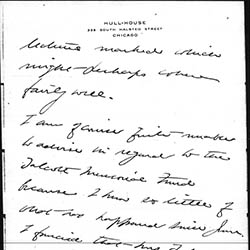 HULL-HOUSE
335 SOUTH HALSTED STREET
CHICAGO
marked which
might perhaps cover
fairly well.
I am of course quite unable
to advise in regard to the
Talcott Memorial Fund
because I know so little of
what has happened since June
I fancied that